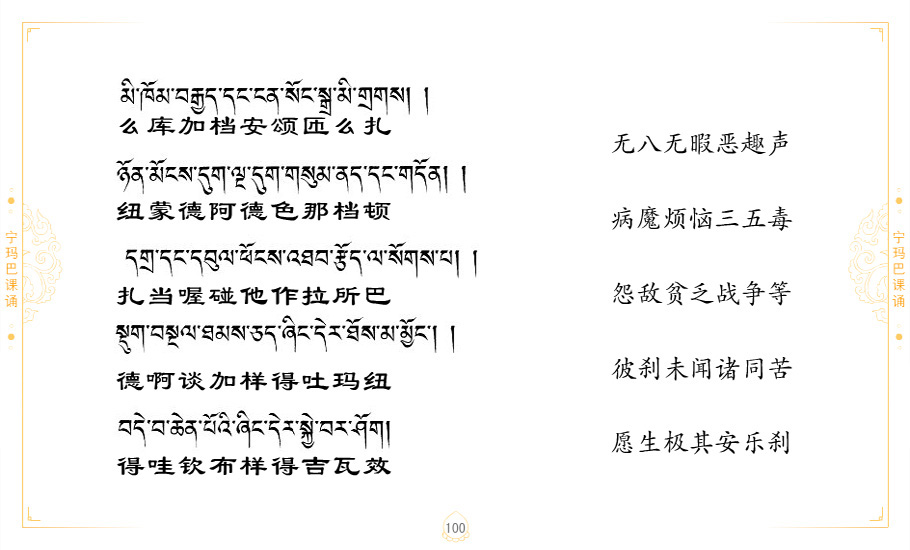 མི་ཁོམ་བརྒྱད་དང་ངན་སོང་སྒྲ་མི་གྲགས། །
么库加档安颂匝么扎
无八无暇恶趣声
ཉོན་མོངས་དུག་ལྔ་དུག་གསུམ་ནད་དང་གདོན། །
纽蒙德阿德色那档顿
病魔烦恼三五毒
དགྲ་དང་དབུལ་ཕོངས་འཐབ་རྩོད་ལ་སོགས་པ། །
扎当喔碰他作拉所巴
怨敌贫乏战争等
སྡུག་བསྔལ་ཐམས་ཅད་ཞིང་དེར་ཐོས་མ་མྱོང་། །
德啊谈加样得吐玛纽
彼刹未闻诸同苦
བདེ་བ་ཆེན་པོའི་ཞིང་དེར་སྐྱེ་བར་ཤོག།
得哇钦布样得吉瓦效
愿生极其安乐刹
宁玛巴课诵
宁玛巴课诵
100